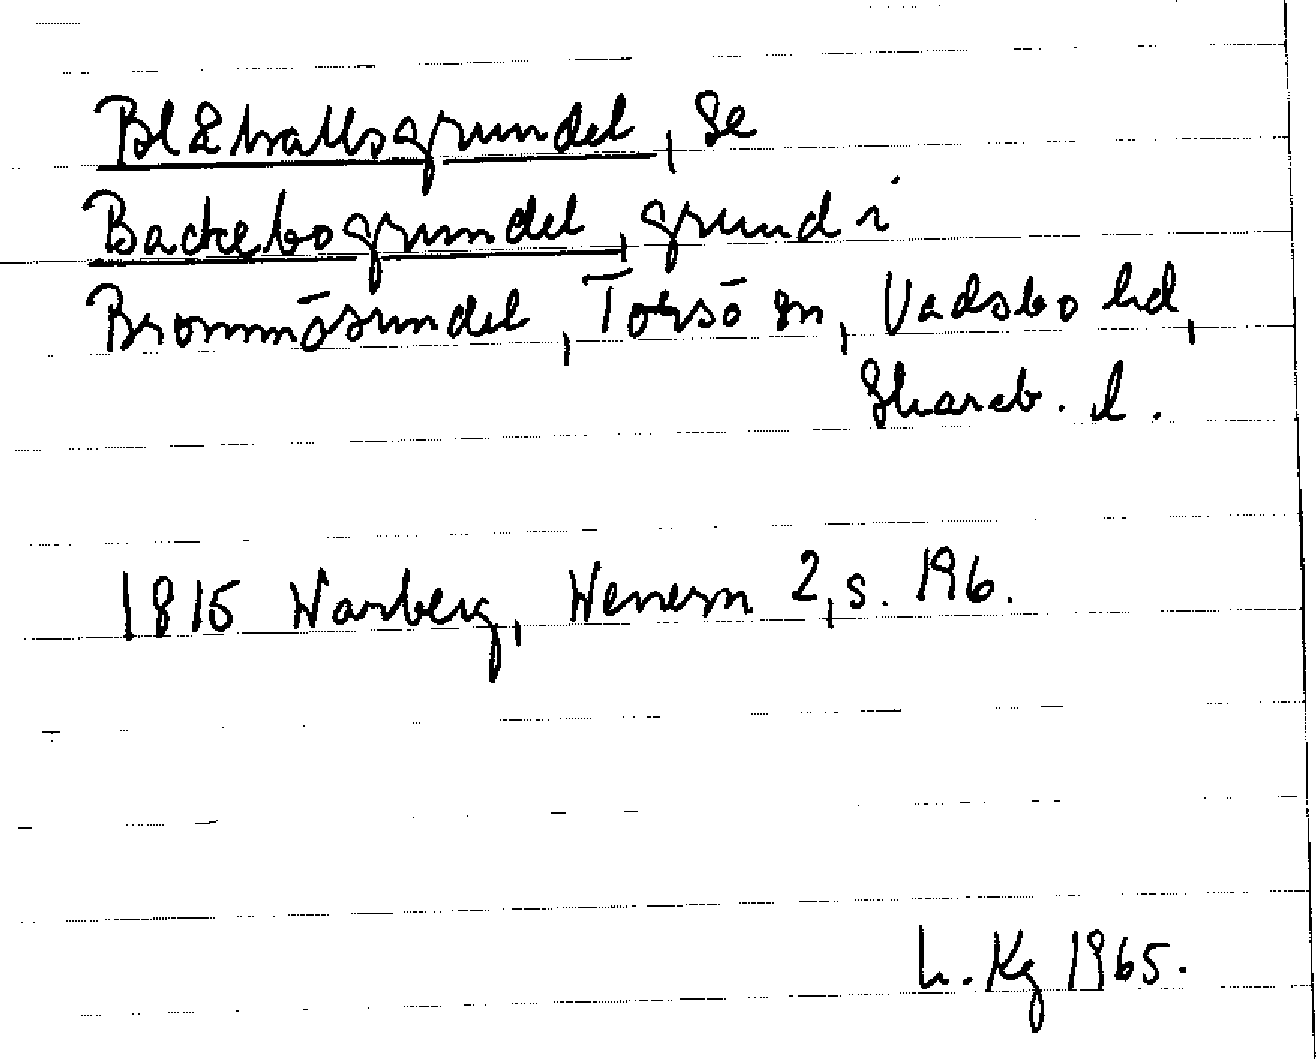 Blåtrallsgrundet, se
Backebogrundet, grund i
Brommösundet, Torsö sn, Vadsbo hd,
Skarab. l.
1815 Warberg, Wenern 2, s. 196.
L. Kg 1965.